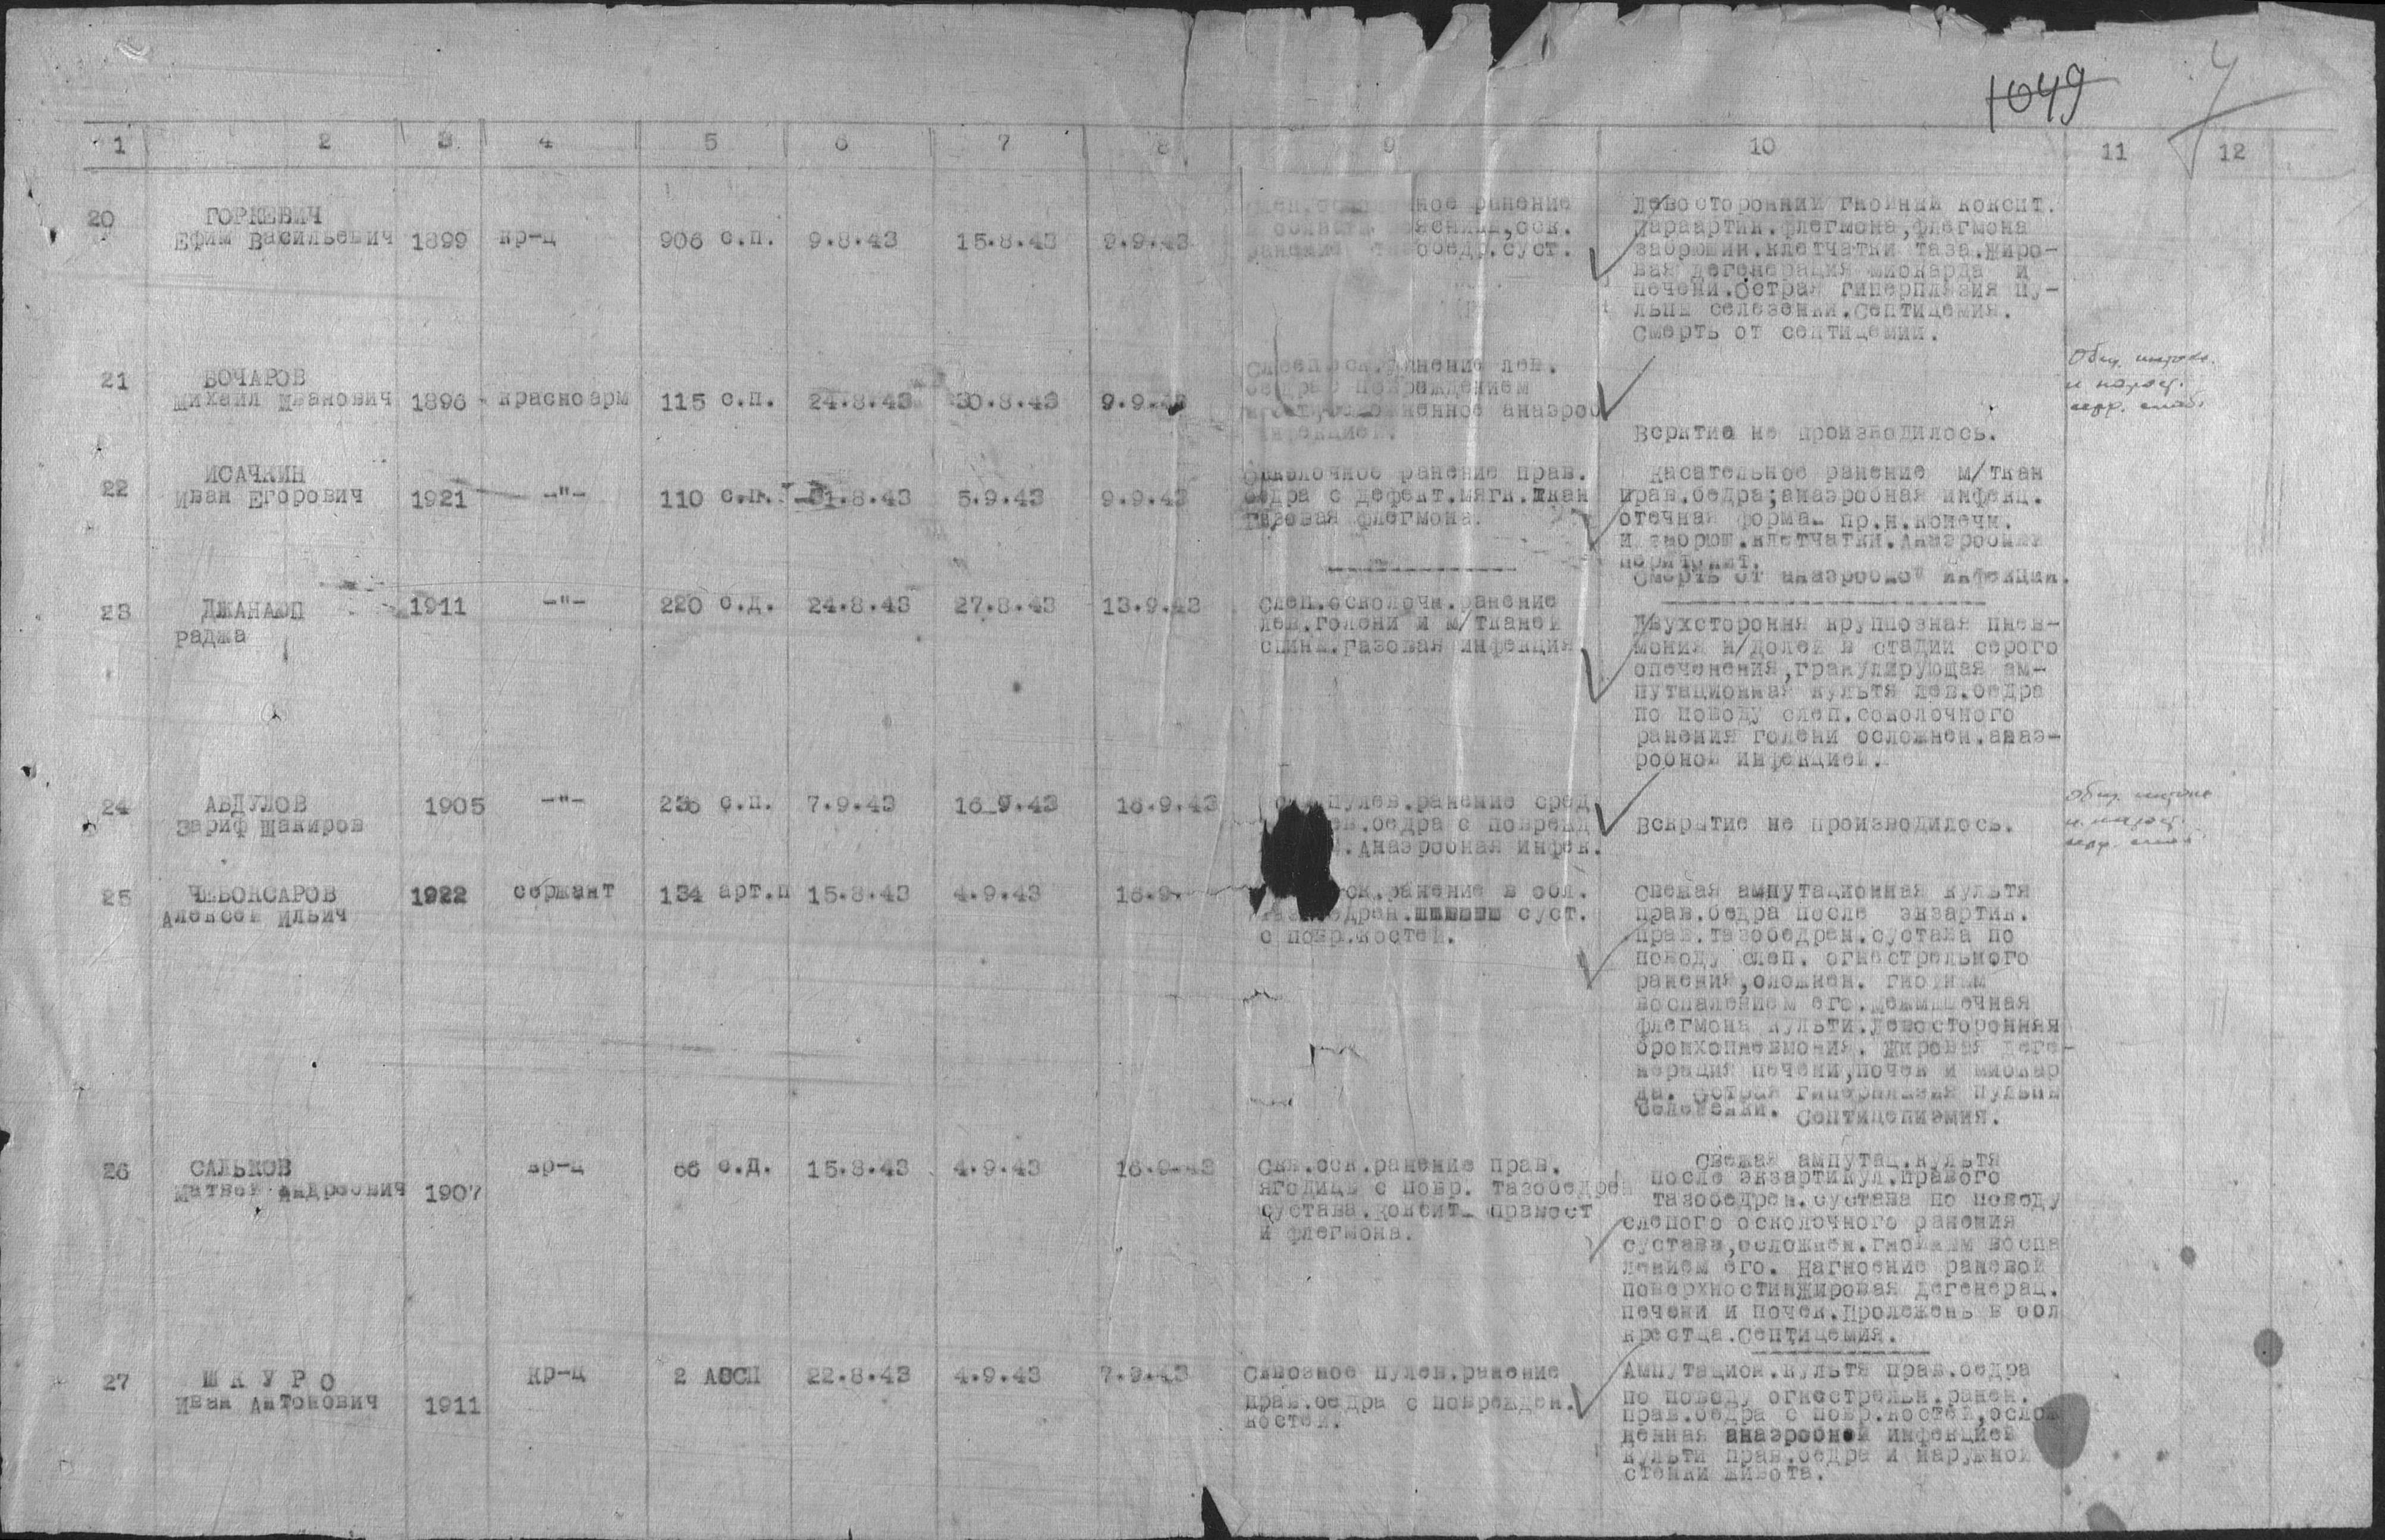 1049
1 2 3 4 5 6 7 8 9 10 11 12
20 ГОРКЕВИЧ
Ефим Васильевич 1899 кр-ц 906 с.п. 9.8.43 15.8.43 9.9.43
ное ранение
ясницы,оск.
обедр.суст.
Левосторонний гнойный коксит.
Параартик.флегмона,флегмона
забрюшин.клетчатки таза.Жиро-
вая дегенерация миокарда и
печени.Острая гиперплазия пу-
льпы селезенки.Септицемия.
Смерть от септицемии.
21 БОЧАРОВ
Михаил Иванович 1896 красноарм 115 с.п. 24.8.43 30.8.43 9.9.43
ранение лев.
бедра с повреждением
анаэроб
инфекцией.
Вскрытие не производилось.
22 ИСАЧКИН
Иван Егорович 1921 -"- 110 с.п. 31.8.43 5.9.43 9.9.43
Осколочное ранение прав.
бедра с дефект.мягк.ткан
Газовая флегмона.
Касательное ранение м/ткан
прав.бедра;анаэробная инфекц.
отечная форма пр.н.конечн.
и забрюш.клетчатки.Анаэробный
перитонит.
Смерть от анаэробной инфекции.
23 ДЖАНАЮП
Раджа 1911 -"- 220 с.д. 24.8.43 27.8.43 13.9.43
Слеп.осколочн.ранение
лев.голени и м/тканей
спины.Газовая инфекция
Двухстороння круппозная пнев-
мония н/долей в стадии серого
опеченения,гранулирующая ам-
путационная культя лев.бедра
по поводу слеп.соколочного
ранения голени осложнен.анаэ-
робной инфекцией.
24 АБДУЛОВ
Зариф Шакиров 1905 -"- 236 с.п. 7.9.43 16.9.43 16.9.43
пулев.ранение сред
ев.бедра с поврежд
.Анаэробная инфек.
Вскрытие не производилось.
25 ЧЕБОКСАРОВ
Алексей Ильич 1922 сержант 134 арт.п 15.8.43 4.9.43 16.9.
ск.ранение в обл.
едрен. суст.
с повр.костей.
Свежая ампутационная культя
прав.бедра после экзартик.
прав.тазобедрен.сустава по
поводу слеп. огнестрельного
ранения,сложнен. гнойным
воспалением его.Межмышечная
флегмона культи.Левосторонняя
бронхопневмония. Жировая деге-
нерация печени,почек и миокар
да. Острая гиперплазия пульпы
селезенки. Септицепиэмия.
26 САЛЬКОВ
Матвей Андреевич 1907 кр-ц 66 с.д. 15.8.43 4.9.43 16.9.43
Скв.оск.ранение прав.
ягодицы с повр. тазобедрен
сустава.Коксит правост
и флегмона.
Свежая ампутац.культя
после экзартикул.правого
тазобедрен.сустава по поводу
слепого осколочного ранения
сустава,осложнен.гнойным воспа
лением его. Нагноение раневой
поверхностииЖировая дегенерац.
печени и почек.Пролежень в обл
крестца.Септицемия.
27 Ш К У Р О
Иван Антонович 1911 кр-ц 2 АССП 22.8.43 4.9.43 7.9.43
Сквозное пулев.ранение
прав.бедра с поврежден.
костей.
Ампутацион.культя прав.бедра
по поводу огнестрельн.ранен.
прав.бедра с повр.костей,ослож
ненная анаэробной инфекцией
культи прав.бедра и наружной
стенки живота.